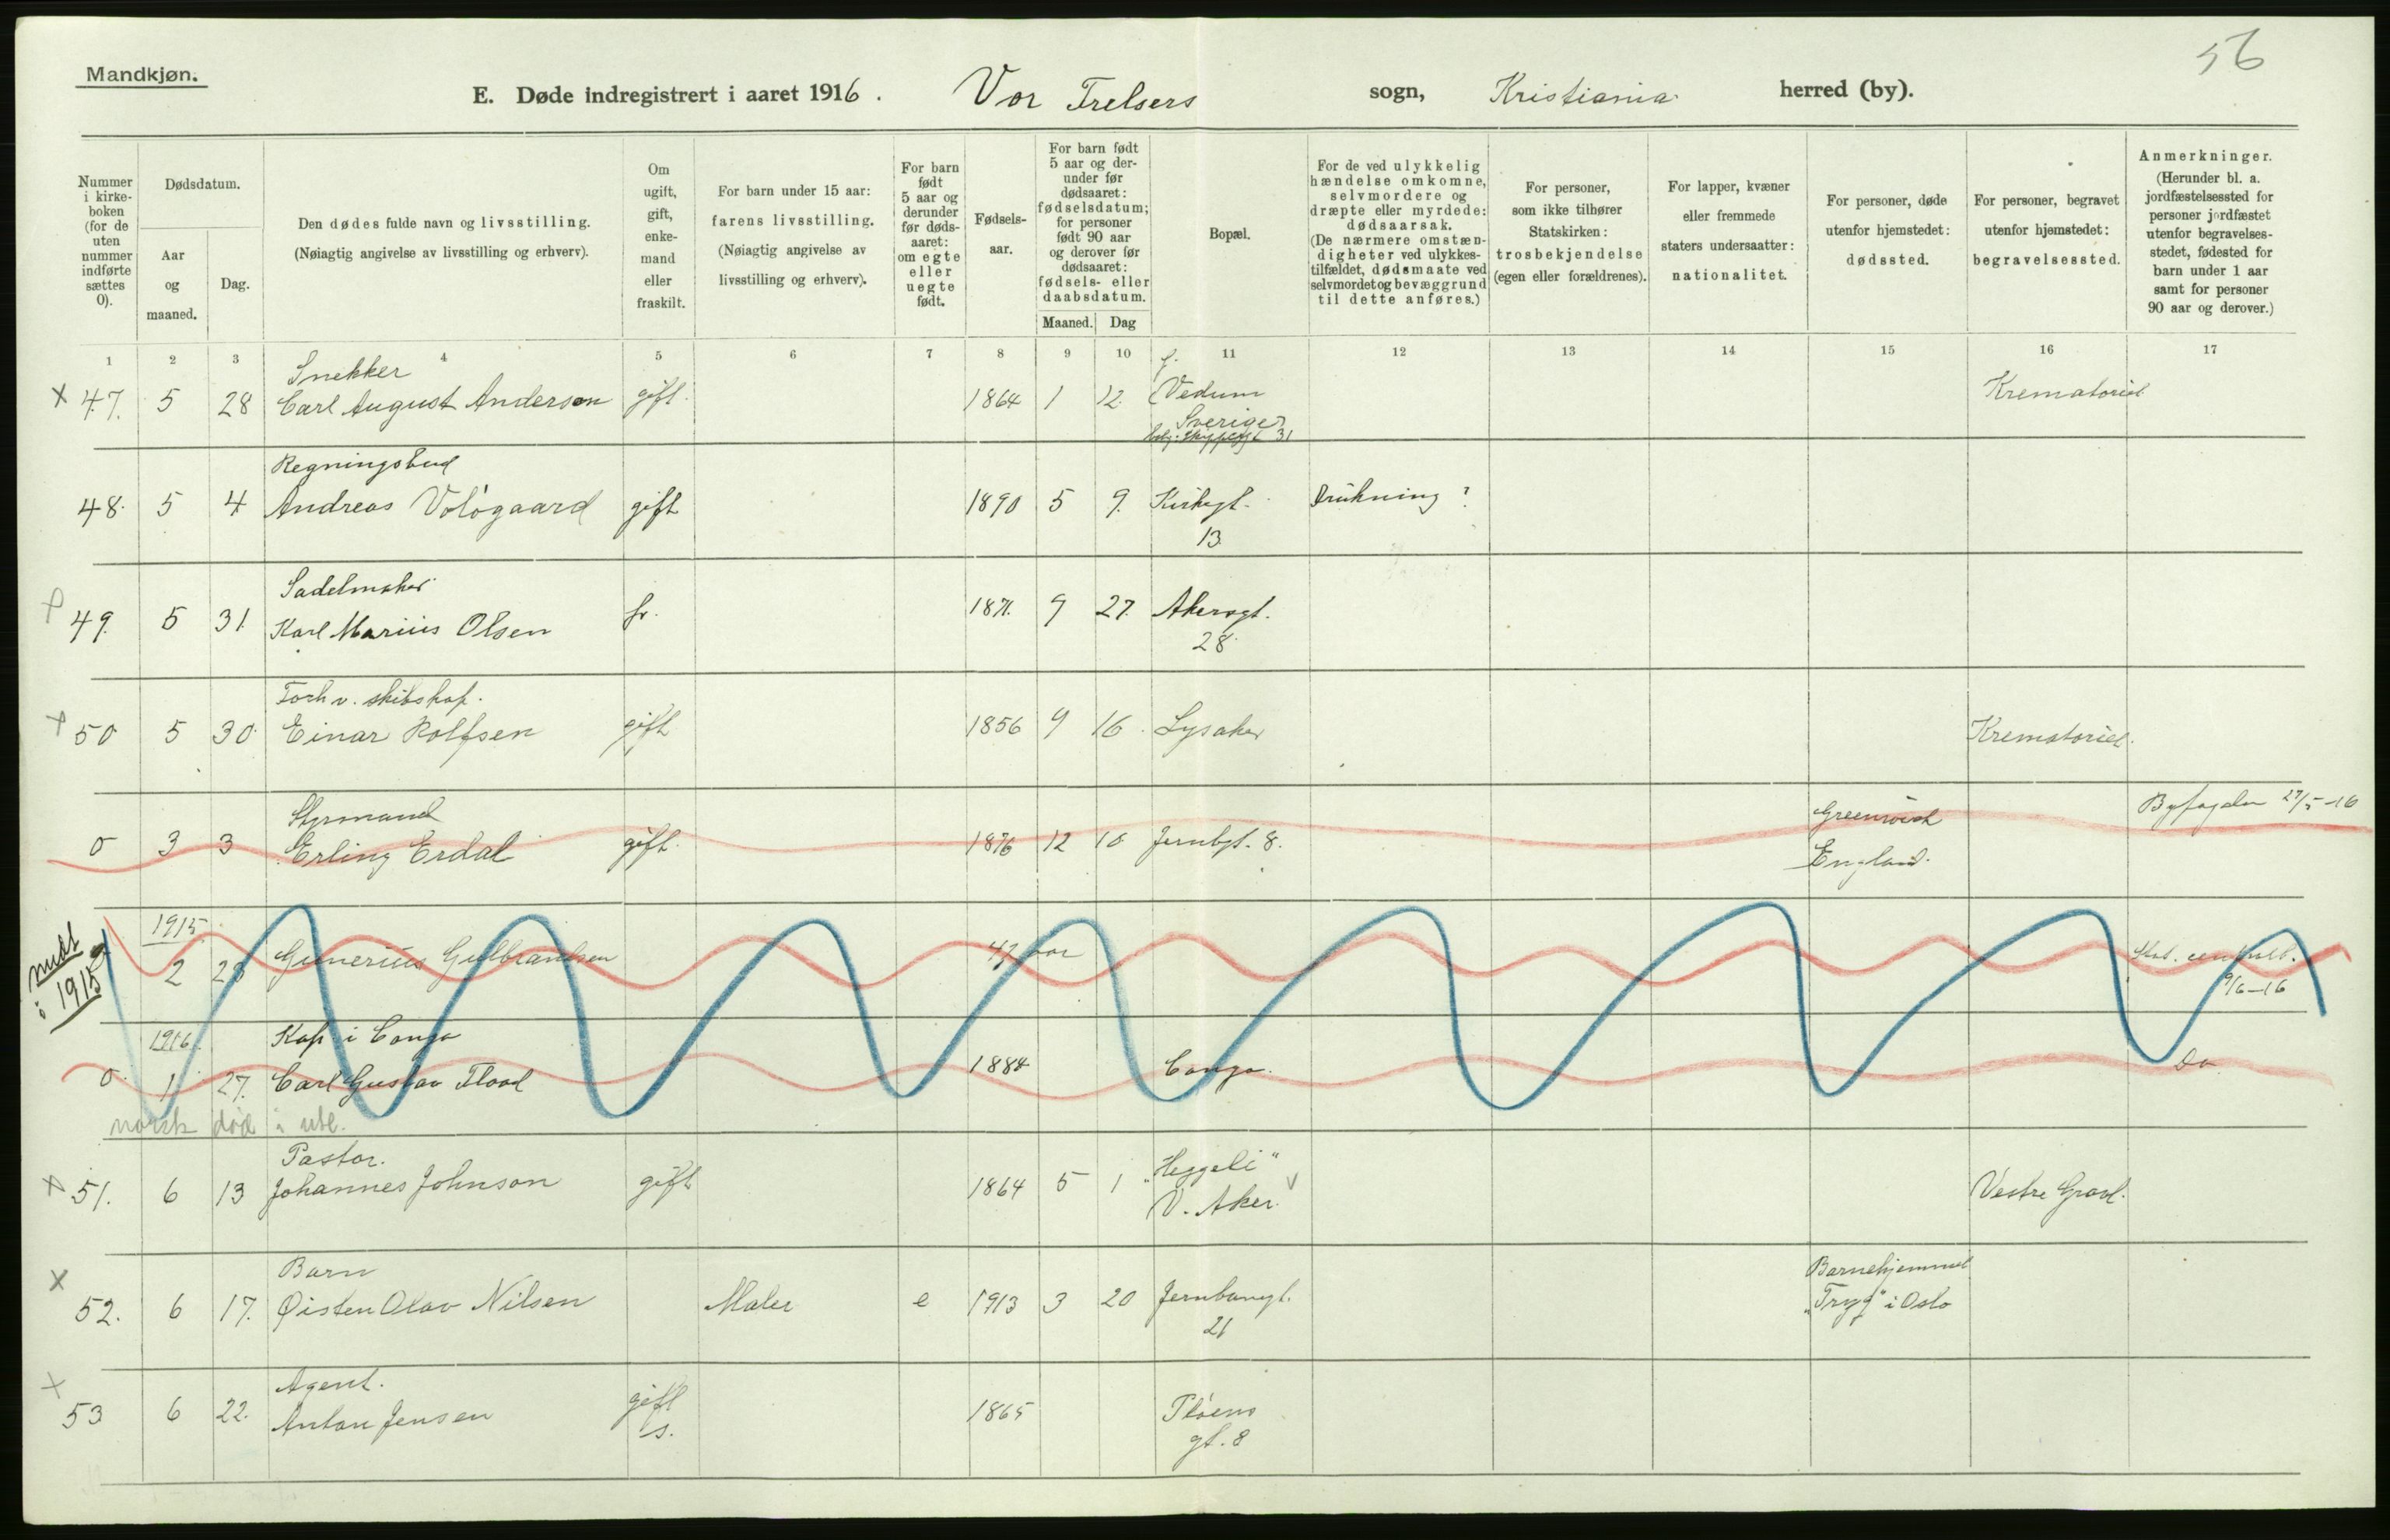 56
Mandkjøn.
E. Døde indregistrert i aaret 1916. Vor Frelsers sogn, Kristiania herred (by).
Nummer i kirke-boken (for de uten nummer indførte sættes 0).
Dødsdatum.
Aar og maaned.
Dag.
Den dødes fulde navn og livsstilling.
(Nøiagtig angivelse av livsstilling og erhverv).
Om ugift, gift, enke-mand eller fraskilt.
For barn under 15 aar: farens livsstilling.
(Nøiagtig angivelse av livsstilling og erhverv).
For barn født 5 aar og derunder før døds-aaret: om egte eller uegte født.
Fødsels-aar.
For barn født 5 aar og der-under før dødsaaret: fødselsdatum; for personer født 90 aar og derover før dødsaaret: fødsels- eller daabsdatum.
Maaned.
Dag
Bopæl.
For de ved ulykkelig hændelse omkomne, selvmordere og dræpte eller myrdede: dødsaarsak.
(De nærmere omstæn-digheter ved ulykkes-tilfældet, dødsmaate ved selvmordet og bevæggrund til dette anføres.)
For personer, som ikke tilhører Statskirken: trosbekjendelse (egen eller forældrenes).
For lapper, kvæner eller fremmede staters undersaatter: nationalitet.
For personer, døde utenfor hjemstedet: dødssted.
For personer, begravet utenfor hjemstedet: begravelsessted.
Anmerkninger.
(Herunder bl. a. jordfæstelsessted for personer jordfæstet utenfor begravelses-stedet, fødested for barn under 1 aar samt for personer 90 aar og derover.)
1 2 3 4 5 6 7 8 9 10 11 12 13 14 15 16 17
Snekker f.
x 47. 5 28 Carl August Anderson gift. 1864 1 12. Vedum Krematoriet
Sverige
31
Regningsbud
48. 5 4 Andreas gift 1890 5 9. Kirkegt. Drukning?
13.
Sadelmaker
49. 5 31. Karl Marius Olsen fr. 1871. 9 27. Akersgt.
28.
Forh v. skibskap.
50 5 30. Einar Rolfsen gift 1856 9 16. Lysaker Krematoriet.
Styrmand Greenwich Byfogden 27/5-16
0 3 3 Erling Erdal gift. 1876 12 18 Jernbgt. 8. England.
1915
0 2 28 Gunerius Gulbrandsen 47 aar Stat. centralb.
i 1915 9/6-16
1916. Kap i Congo
0. 1 27. Carl Gustav Flood 1884 Congo. Do
norsk død i utl.
Pastor. "Heggeli"
x 51. 6 13 Johannes Johnson gift 1864 5 1 V. Aker. v Vestre Gravl.
Barn Barnehjemmet
x 52. 6 17. Øisten Olav Nilsen Maler e 1913 3 20 Jernbanegt. "Tryg" i Oslo
21
Agent.
x 53 6 22. Anton Jensen gift 1865 Pløens
s. gt. 8